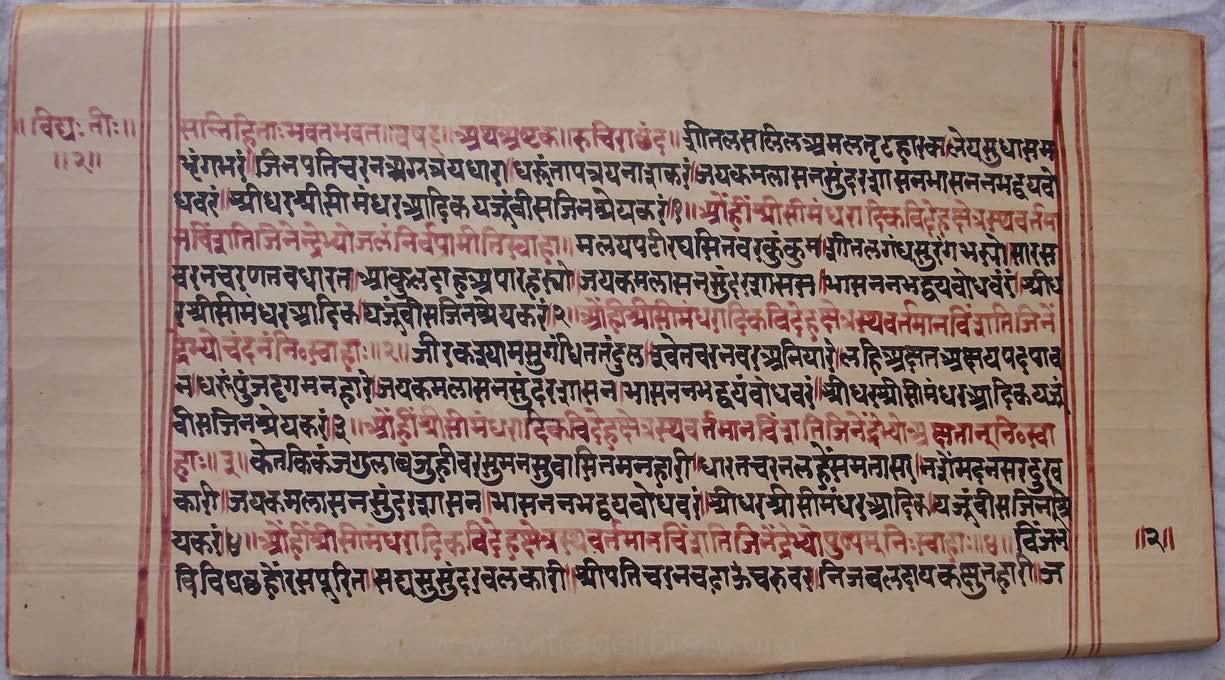 ॥ विद्यः नीः ॥
॥ २ ॥
सान्निहिताः भवतभवत ॥ वषट् ॥ अथअष्टक ॥ रुचिराछंद ॥ शीतलसलिलअमलतृटहारक । लेयसुधासम
भृंगभरं । जिनपतिचरनअग्रत्रयधारा । धरूंतापत्रयनाशकरं । जयकमलासनसुंदरशासनभासनभद्वयबो
धवरं । श्रीधरश्रीसीमंधरआदिकयजूंवीसजिनश्रेयकरं । १ ॥ ओंह्रींश्रीसीमंधरादिकविदेहक्षेत्रस्थवर्तमा
नविंशतिजिनेन्द्रेभ्योजलंनिर्वपामीतिस्वाहा ॥ मलयपटीरघसितवरकुंकुम । शीतलगंधसुरंगभर्यो । सारस
वरनचरणतवधारत । आकुलदाहअपारहर्यो । जयकमलासनसुंदरशासस । भासननभद्वयबोधवरं । श्रीध
रश्रीसीमंधरआदिक । यजूंवीसजिनश्रेयकरं । २ ॥ ओंह्रींश्रीसीमंधरादिकविदेहक्षेत्रस्थवर्तमानविंशतिजिनें
द्रेभ्योचंदनंनि॰स्वाहाः ॥ २ ॥ जीरकश्यामसुगंधिततंदुल । श्वेतवरनवरअनियारे । लहिअक्षतअक्षयपदपाव
त । धरूंपुंजदृगमनहारे । जयकमलासनसुंदरशासन । भासननभद्वयंबोधवरं । श्रीधरश्रीसीमंधरआदिकयजूं
वीसजिनश्रेयकरं । ३ ॥ ओंह्रींश्रीसीमंधरादिकविदेहक्षेत्रस्थवर्तमानविंशतिजिनेंद्रेभ्योअक्षतान्नि॰स्वा
हाः ॥ ३ ॥ केतकिकंजगुलाबजुहीवरसुमनसुवासितमनहारी । धारतचरनलहेंसमतासा । नशेंमदनसरदुख
कारी । जयकमलासनसुंदरशासन । भासननभद्वयबोधवरं । श्रीधरश्रीसीमंधरआदिक । यजूंवीसजिनश्रे
यकरं । ४ ॥ ओंह्रींश्रीसीमंधरादिकविदेहक्षेत्रस्थवर्तमानविंशतिजिनेंद्रेभ्योपुष्पम्निःस्वाहाः ॥ ४ ॥ विंजन
विविधछहोंरसपूरित । सद्यसुसुंदरबलकारी । श्रीपतिचरनचढाऊंचरुवर । निजबलदायकक्षुतहारी । ज
॥ २ ॥